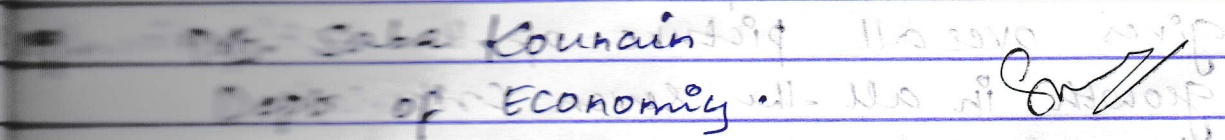 Saba Kounain
Dept of Economics.